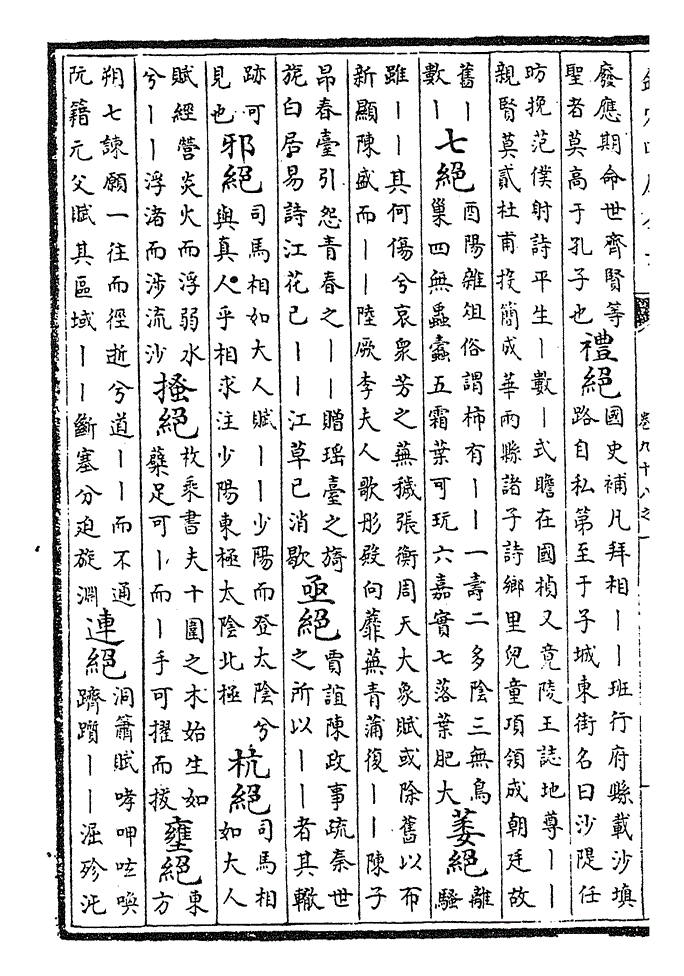 廢應期命世齊賢等聖者莫高于孔子也禮絕國史補凡拜相丨丨班行府縣載沙填路自私第至于子城東街名曰沙隄任
昉挽范僕射詩平生丨數丨式瞻在國楨又竟陵王誌地尊丨丨親賢莫貳杜甫投簡成華兩縣諸子詩鄉里兒童項領成朝廷故
舊丨數丨七絕酉陽雜俎俗謂柿有丨丨一壽二多陰三無鳥巢四無蟲蠹五霜葉可玩六嘉實七落葉肥大萎絕離騷
雖丨丨其何傷兮哀衆芳之蕪穢張衡周天大象賦或除舊以布新顯陳盛而丨丨陸厥李夫人歌彤殿向蘼蕪青蒲復丨丨陳子
昂春臺引怨青春之丨丨贈瑶臺之旖旎白居易詩江花已丨丨江草已消歇亟絕賈誼陳政事疏秦世之所以丨丨者其轍
跡可見也邪絕司馬相如大人賦丨丨少陽而登太陰兮與真人乎相求注少陽東極太陰北極杭絕司馬相如大人
賦經營炎火而浮弱水兮丨丨浮渚而涉流沙搔絕枚乘書夫十圍之木始生如蘖足可丨而丨手可擢而拔壅絕東方
朔七諫願一往而徑逝兮道丨丨而不通阮籍元父賦其區域丨丨斷塞分迫旋淵連絕洞簫賦哮呷呟喚躋躓丨丨淈殄沌